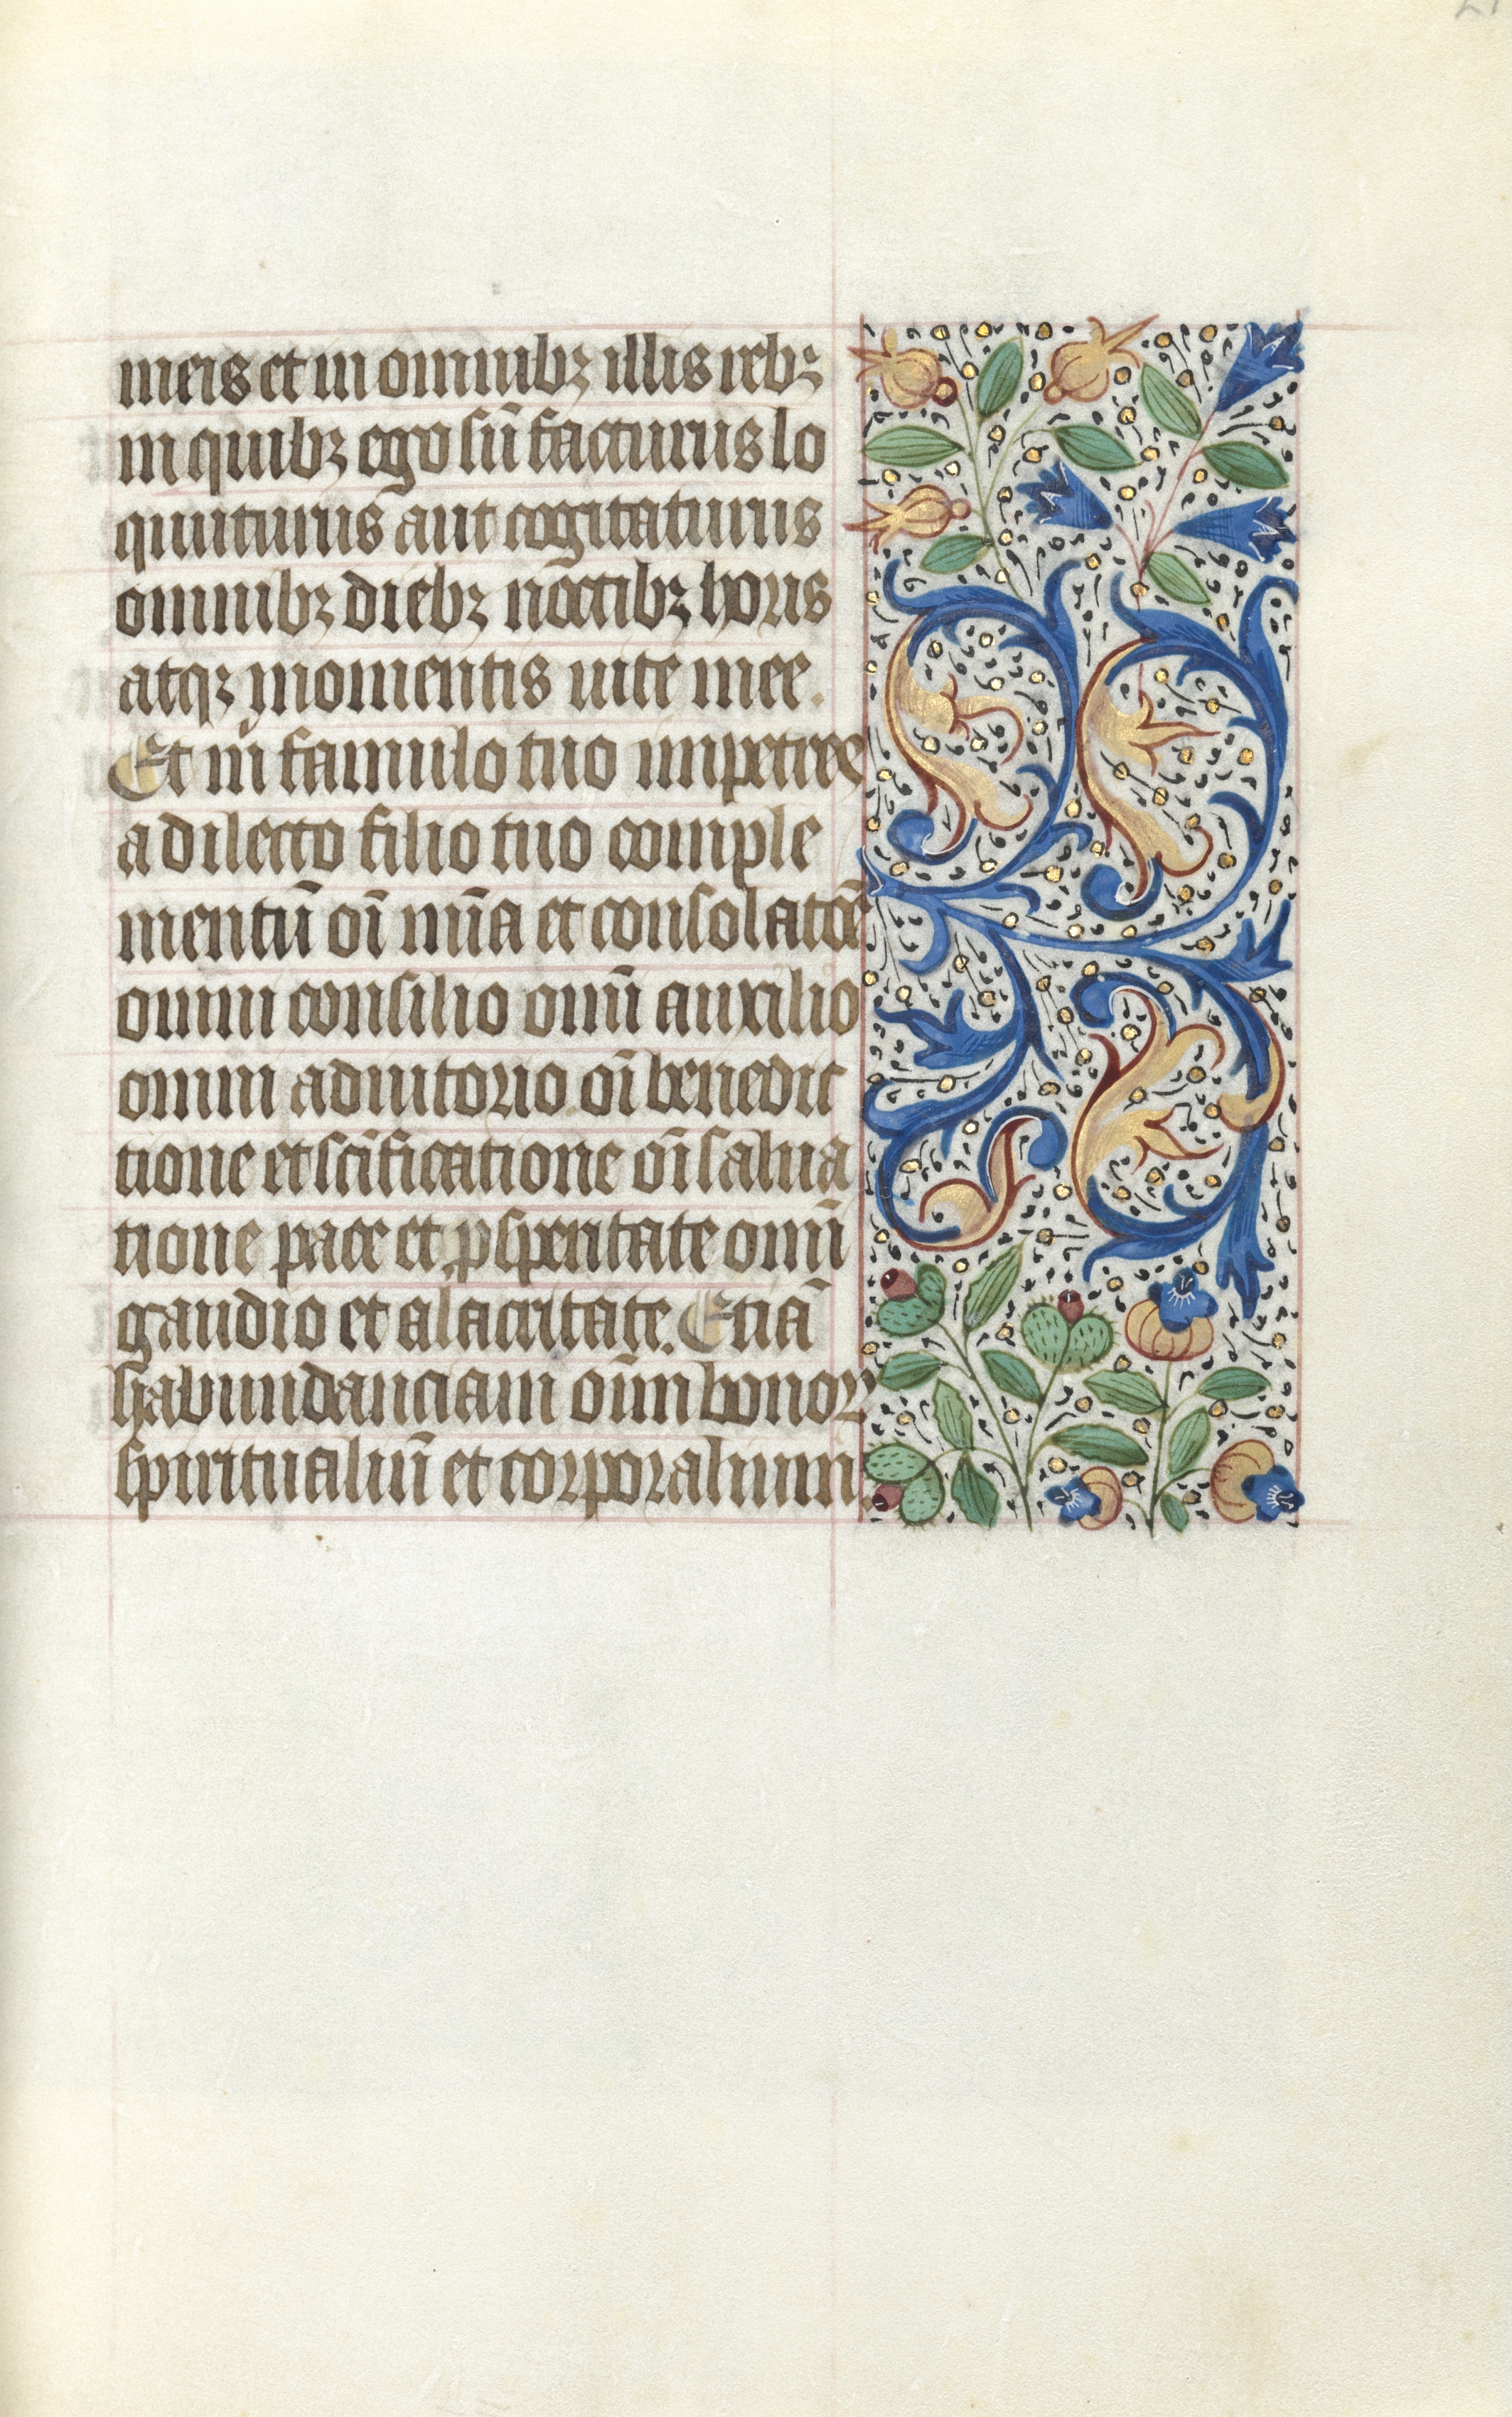 meis et in omnibꝫ illis rebꝫ
in quibꝫ ego sū facturus lo
quuturus aut cogitaturus
omnibꝫ diebꝫ noctibꝫ horis
atqꝫ momentis uite mee.
Et m̄ famulo tuo impetres
a dilecto filio tuo comple
mentū oī mīa et consolatōe
omni consilio omī auxilio
omni adiutorio oī benedic
tione et scīficatione oī salua
tione pace et ꝓsperitate omī
gaudio et alacritate. Etiā
habundanciam oīm bonoꝝ
spiritualiū et corporalium.